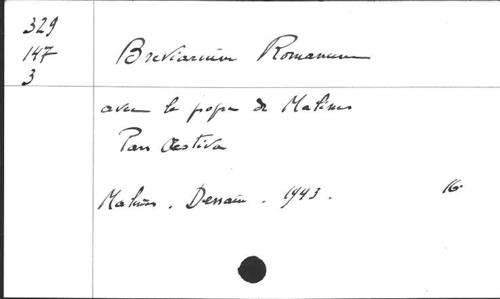 329
147
3
Breviarium Romanum
avec le propre de Malines
Pars Aestiva
Malines. Dessain. 1943. 16.